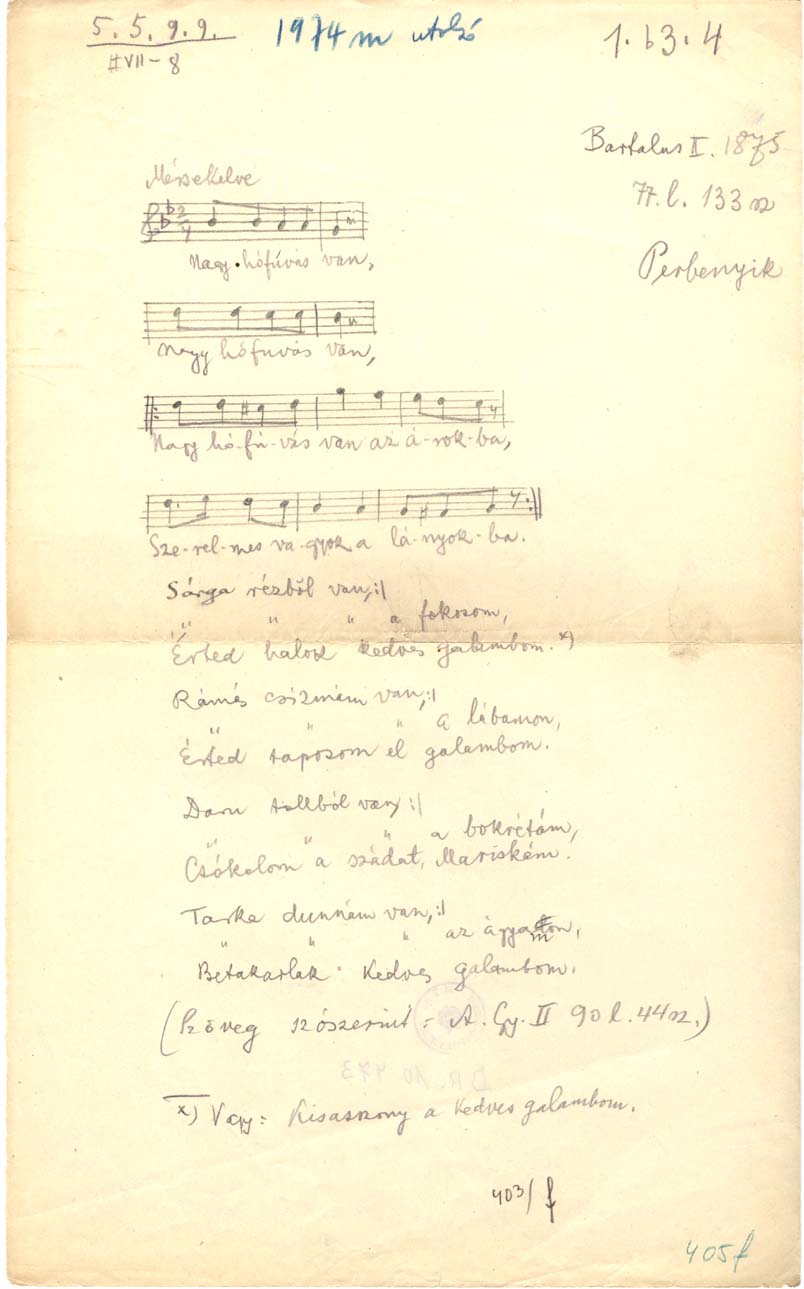 5. 5. 9. 9.
VII-8
1974 m utolsó
1. b3. 4
Bartalus II. 1875
77. l. 133 sz
Perbenyik
Mérsékelve
2/4
Nagy hófúvás van,
Nagy hófuvás van,
Nagy hó-fú-vás van az á-rok-ba,
Sze-rel-mes va-gyok a lá-nyok-ba.
Sárga rézből van,:|
" " " a fokosom,
Érted halok kedves galambom. x)
Rámás csizmám van,:|
" " " a lábamon,
Érted taposom el galambom.
Daru tollból van,:|
" " " a bokrétám,
Csókolom a szádat, Mariskám.
Tarka dunnám van,:|
" " " az ágyamon,
Betakarlak kedves galambom.
(Szöveg szószerint = A. Gy. II 90 l. 44 sz.)
x) Vagy: Kisasszony a kedves galambom.
403/f
405f